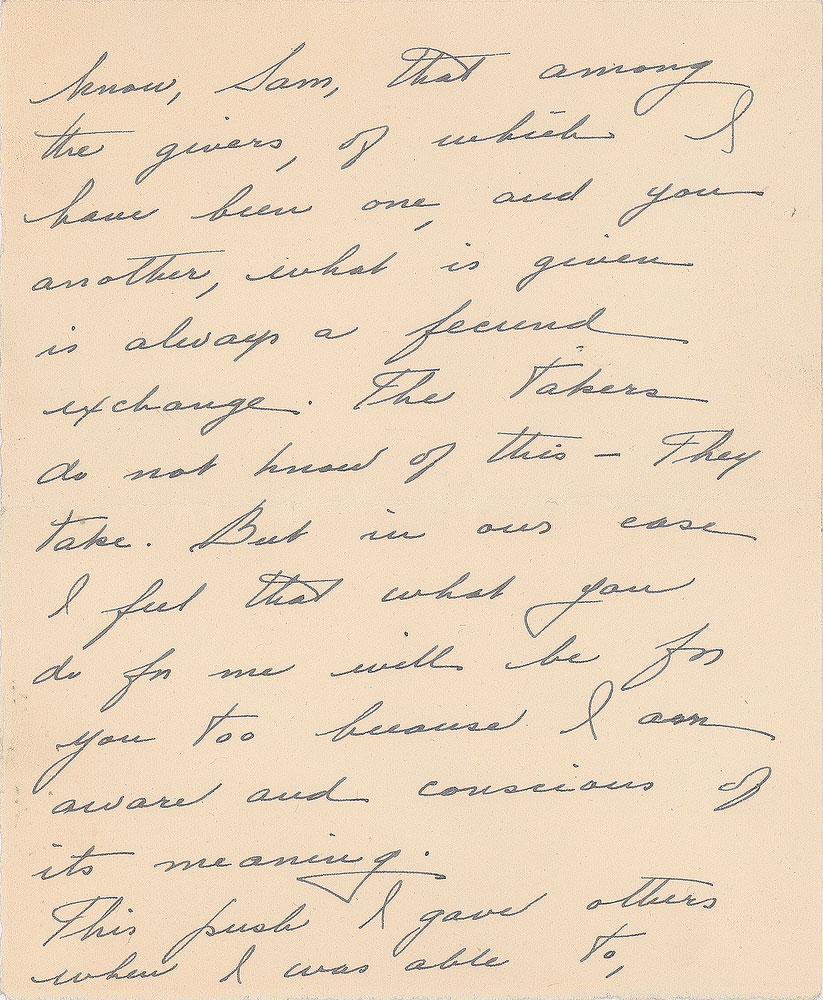 know, Sam, that among
the givers, of which I
have been one, and you
another, what is given
is always a fecund
exchange. The takers
do not know of this – They
take. But in our case
I feel that what you
do for me will be for
you too because I am
aware and conscious of
its meaning.
This push I gave others
when I was able to,